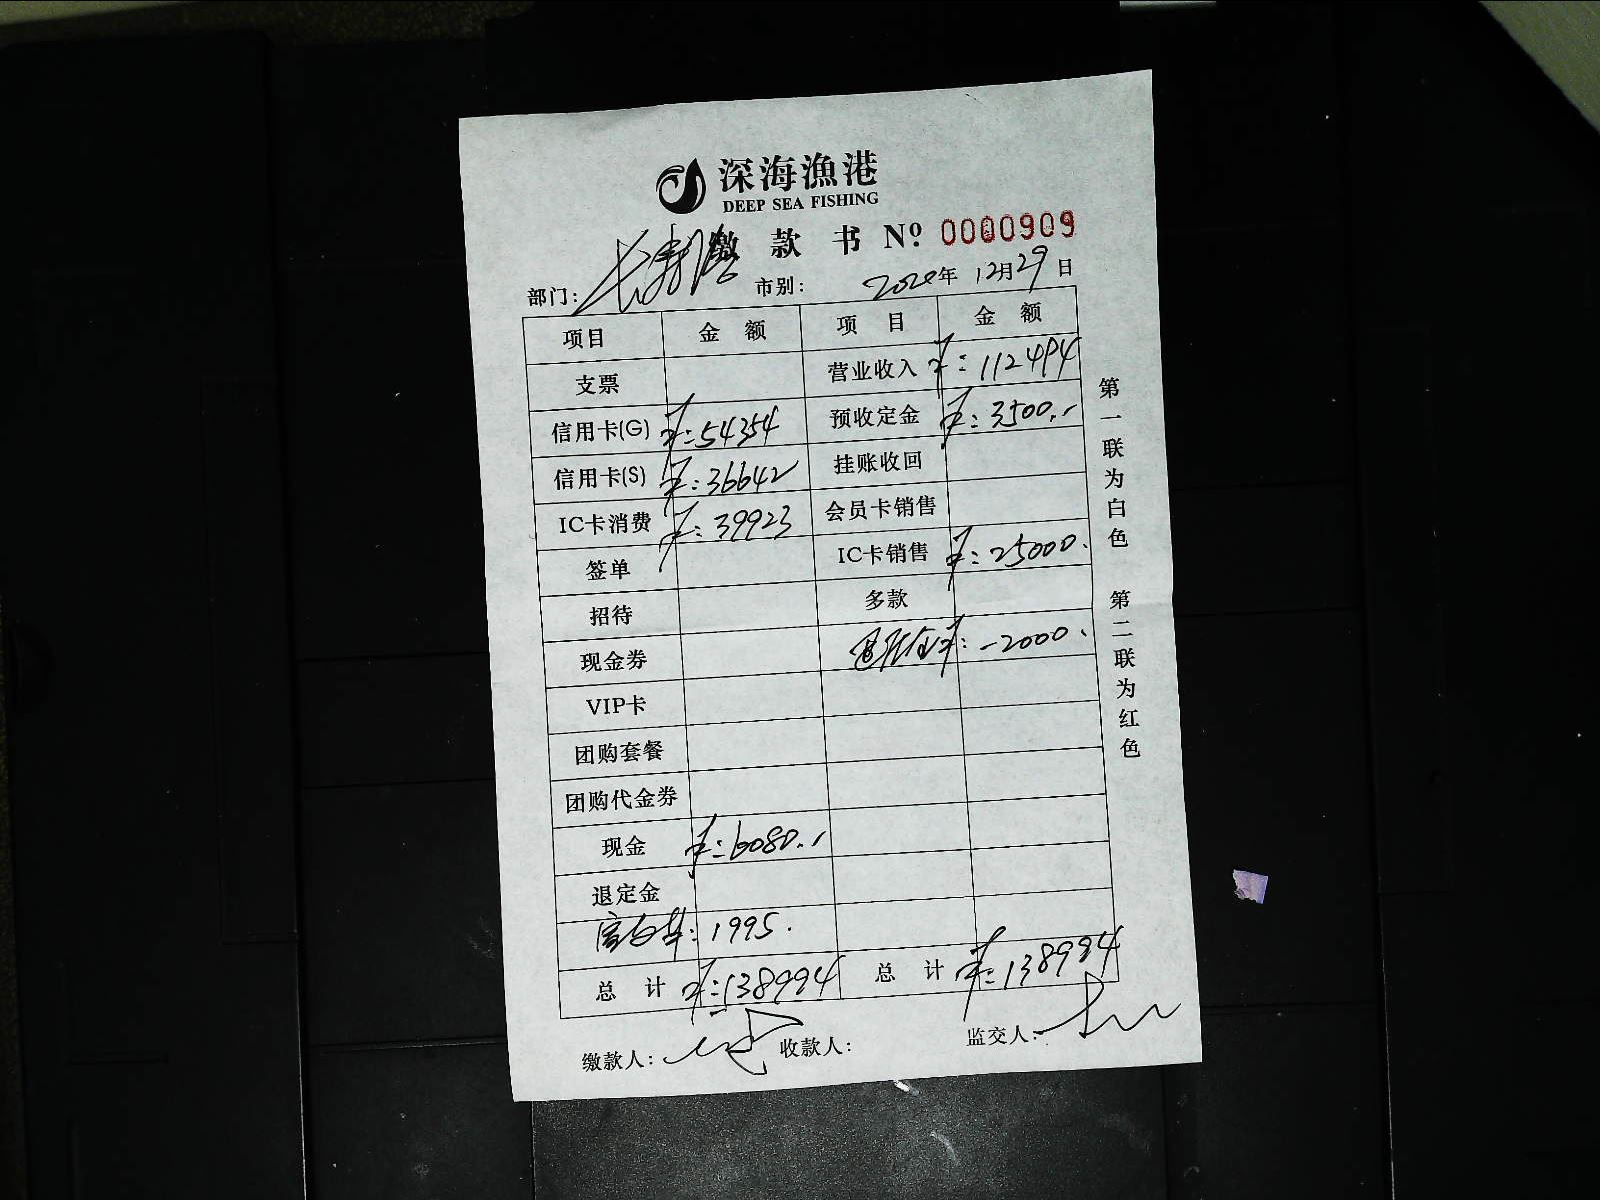 深海渔港
DEEP SEA FISHING
缴款书 Nº 0000909
部门: 市别: 2020年 12月29日
项目 金额 项目 金额
支票 营业收入 ¥:112494
信用卡(G) ¥:54354 预收定金 ¥:3500.-
信用卡(S) ¥:36642 挂账收回
IC卡消费 ¥:39923 会员卡销售
签单 IC卡销售 ¥:25000.
招待 多款
现金券 退定金 ¥:-2000.
VIP卡
团购套餐
团购代金券
现金 ¥:6080.-
退定金
1995.
总计 ¥:138994 总计 ¥:138994
缴款人: 收款人: 监交人:
第一联为白色 第二联为红色